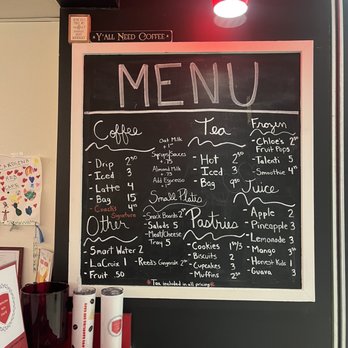 Y'ALL NEED COFFEE
MENU
Coffee
- Drip 2.50
- Iced 3
- Latte 4
- Bag 15
- Chachi's Signature 4.50
Oat Milk +1
Syrups/Sauces +.75
Almond Milk +.75
Add Espresso +1
Tea
- Hot 2.50
- Iced 3
- Bag 9.50
Frozen
- Chloe's Fruit Pops 2.50
- Talenti 5
- Smoothie 4.50
Small Plates
- Snack Boards 2.50
- Salads 5
- Meat/Cheese Tray 5
Other
- Smart Water 2
- LaCroix 1
- Fruit .50
- Reed's Gingerale 2.50
Pastries
- Cookies 1.50/3
- Biscuits 2
- Cupcakes 3
- Muffins 2.50
Juice
- Apple 2
- Pineapple 3
- Lemonade 3
- Mango 3
- Honest Kids 1
- Guava 3
*Tax included in all pricing!*